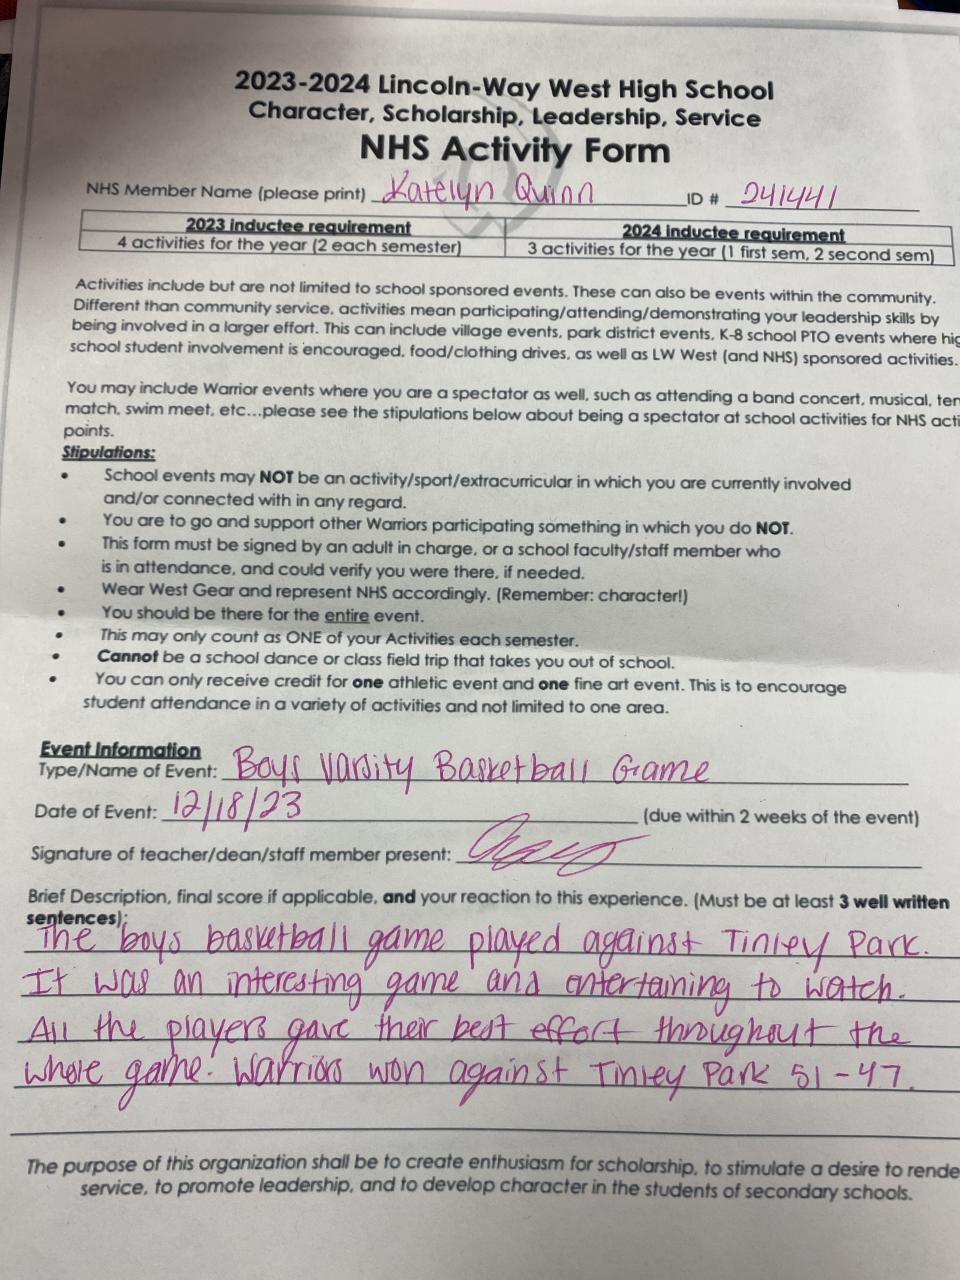 2023-2024 Lincoln-Way West High School
Character, Scholarship, Leadership, Service
NHS Activity Form
NHS Member Name (please print) Katelyn Quinn ID # 241441
2023 inductee requirement 2024 inductee requirement
4 activities for the year (2 each semester) 3 activities for the year (1 first sem, 2 second sem)
Activities include but are not limited to school sponsored events. These can also be events within the community.
Different than community service, activities mean participating/attending/demonstrating your leadership skills by
being involved in a larger effort. This can include village events, park district events, K-8 school PTO events where hig
school student involvement is encouraged, food/clothing drives, as well as LW West (and NHS) sponsored activities.
You may include Warrior events where you are a spectator as well, such as attending a band concert, musical, ten
match, swim meet, etc...please see the stipulations below about being a spectator at school activities for NHS acti
points.
Stipulations:
• School events may NOT be an activity/sport/extracurricular in which you are currently involved
and/or connected with in any regard.
• You are to go and support other Warriors participating something in which you do NOT.
• This form must be signed by an adult in charge, or a school faculty/staff member who
is in attendance, and could verify you were there, if needed.
• Wear West Gear and represent NHS accordingly. (Remember: character!)
• You should be there for the entire event.
• This may only count as ONE of your Activities each semester.
• Cannot be a school dance or class field trip that takes you out of school.
• You can only receive credit for one athletic event and one fine art event. This is to encourage
student attendance in a variety of activities and not limited to one area.
Event Information
Type/Name of Event: Boys Varsity Basketball Game
Date of Event: 12/18/23 (due within 2 weeks of the event)
Signature of teacher/dean/staff member present:
Brief Description, final score if applicable, and your reaction to this experience. (Must be at least 3 well written
sentences):
The boys basketball game played against Tinley Park.
It was an interesting game and entertaining to watch.
All the players gave their best effort throughout the
whole game. Warriors won against Tinley Park 51-47.
The purpose of this organization shall be to create enthusiasm for scholarship, to stimulate a desire to rende
service, to promote leadership, and to develop character in the students of secondary schools.